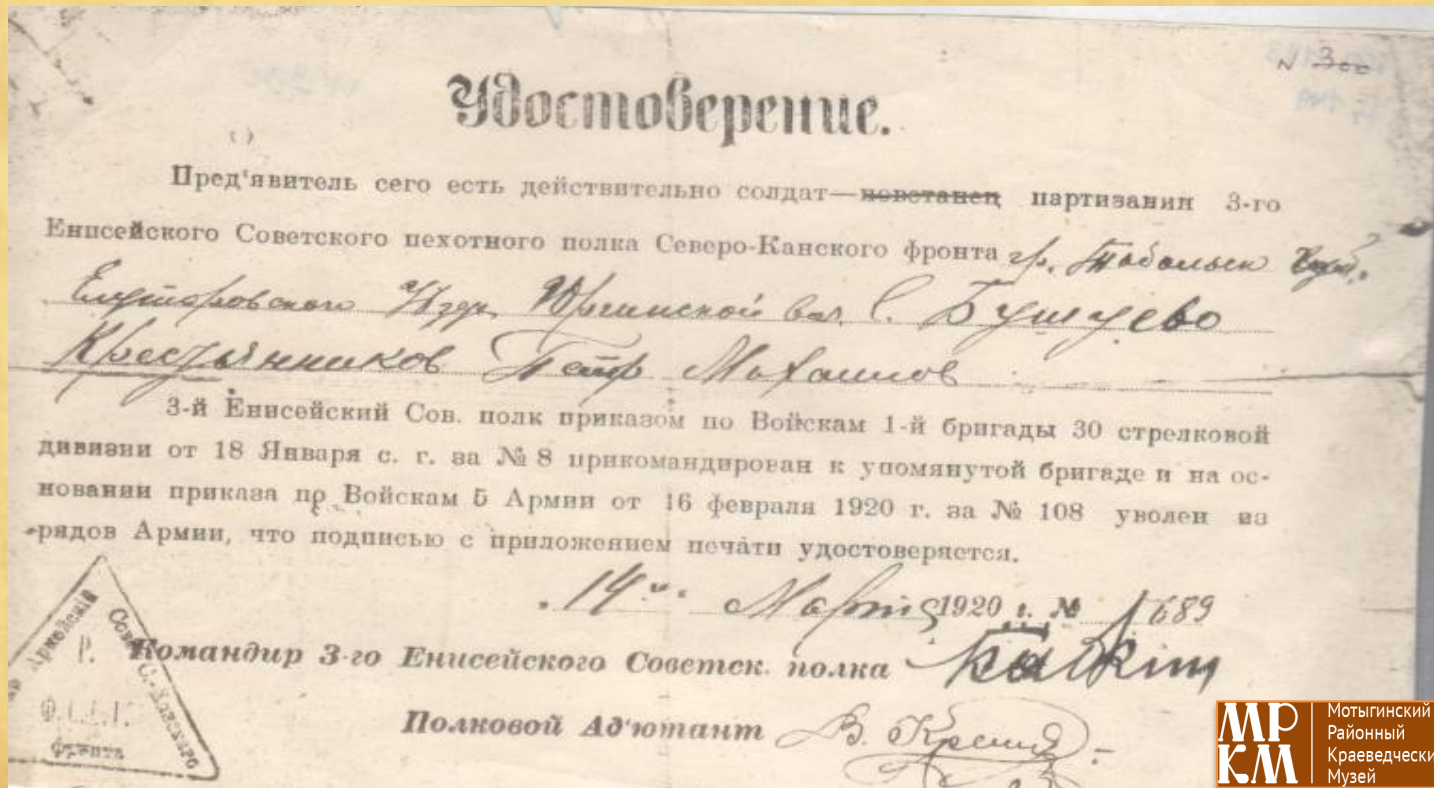 N 300
Удостоверение.
Пред'явитель сего есть действительно солдат—повстанец партизании 3-го
Енисейского Советского пехотного полка Северо-Канского фронта гр. Тобольск Губ.
Уезд. Юргинской вол. С. Бушуево
Крестьянников Петр Михаилов
3-й Енисейский Сов. полк приказом по Войскам 1-й бригады 30 стрелковой
дивизии от 18 Января с. г. за № 8 прикомандирован к упомянутой бригаде и на ос-
новании приказа по Войскам 5 Армии от 16 февраля 1920 г. за № 108 уволен из
рядов Армии, что подписью с приложением печати удостоверяется.
14 Марта 1920 г. № 1689
Командир 3-го Енисейского Советск. полка
Полковой Ад'ютант В.
Р.
фронта
МРКМ
Мотыгинский
Районный
Краеведчески
Музей